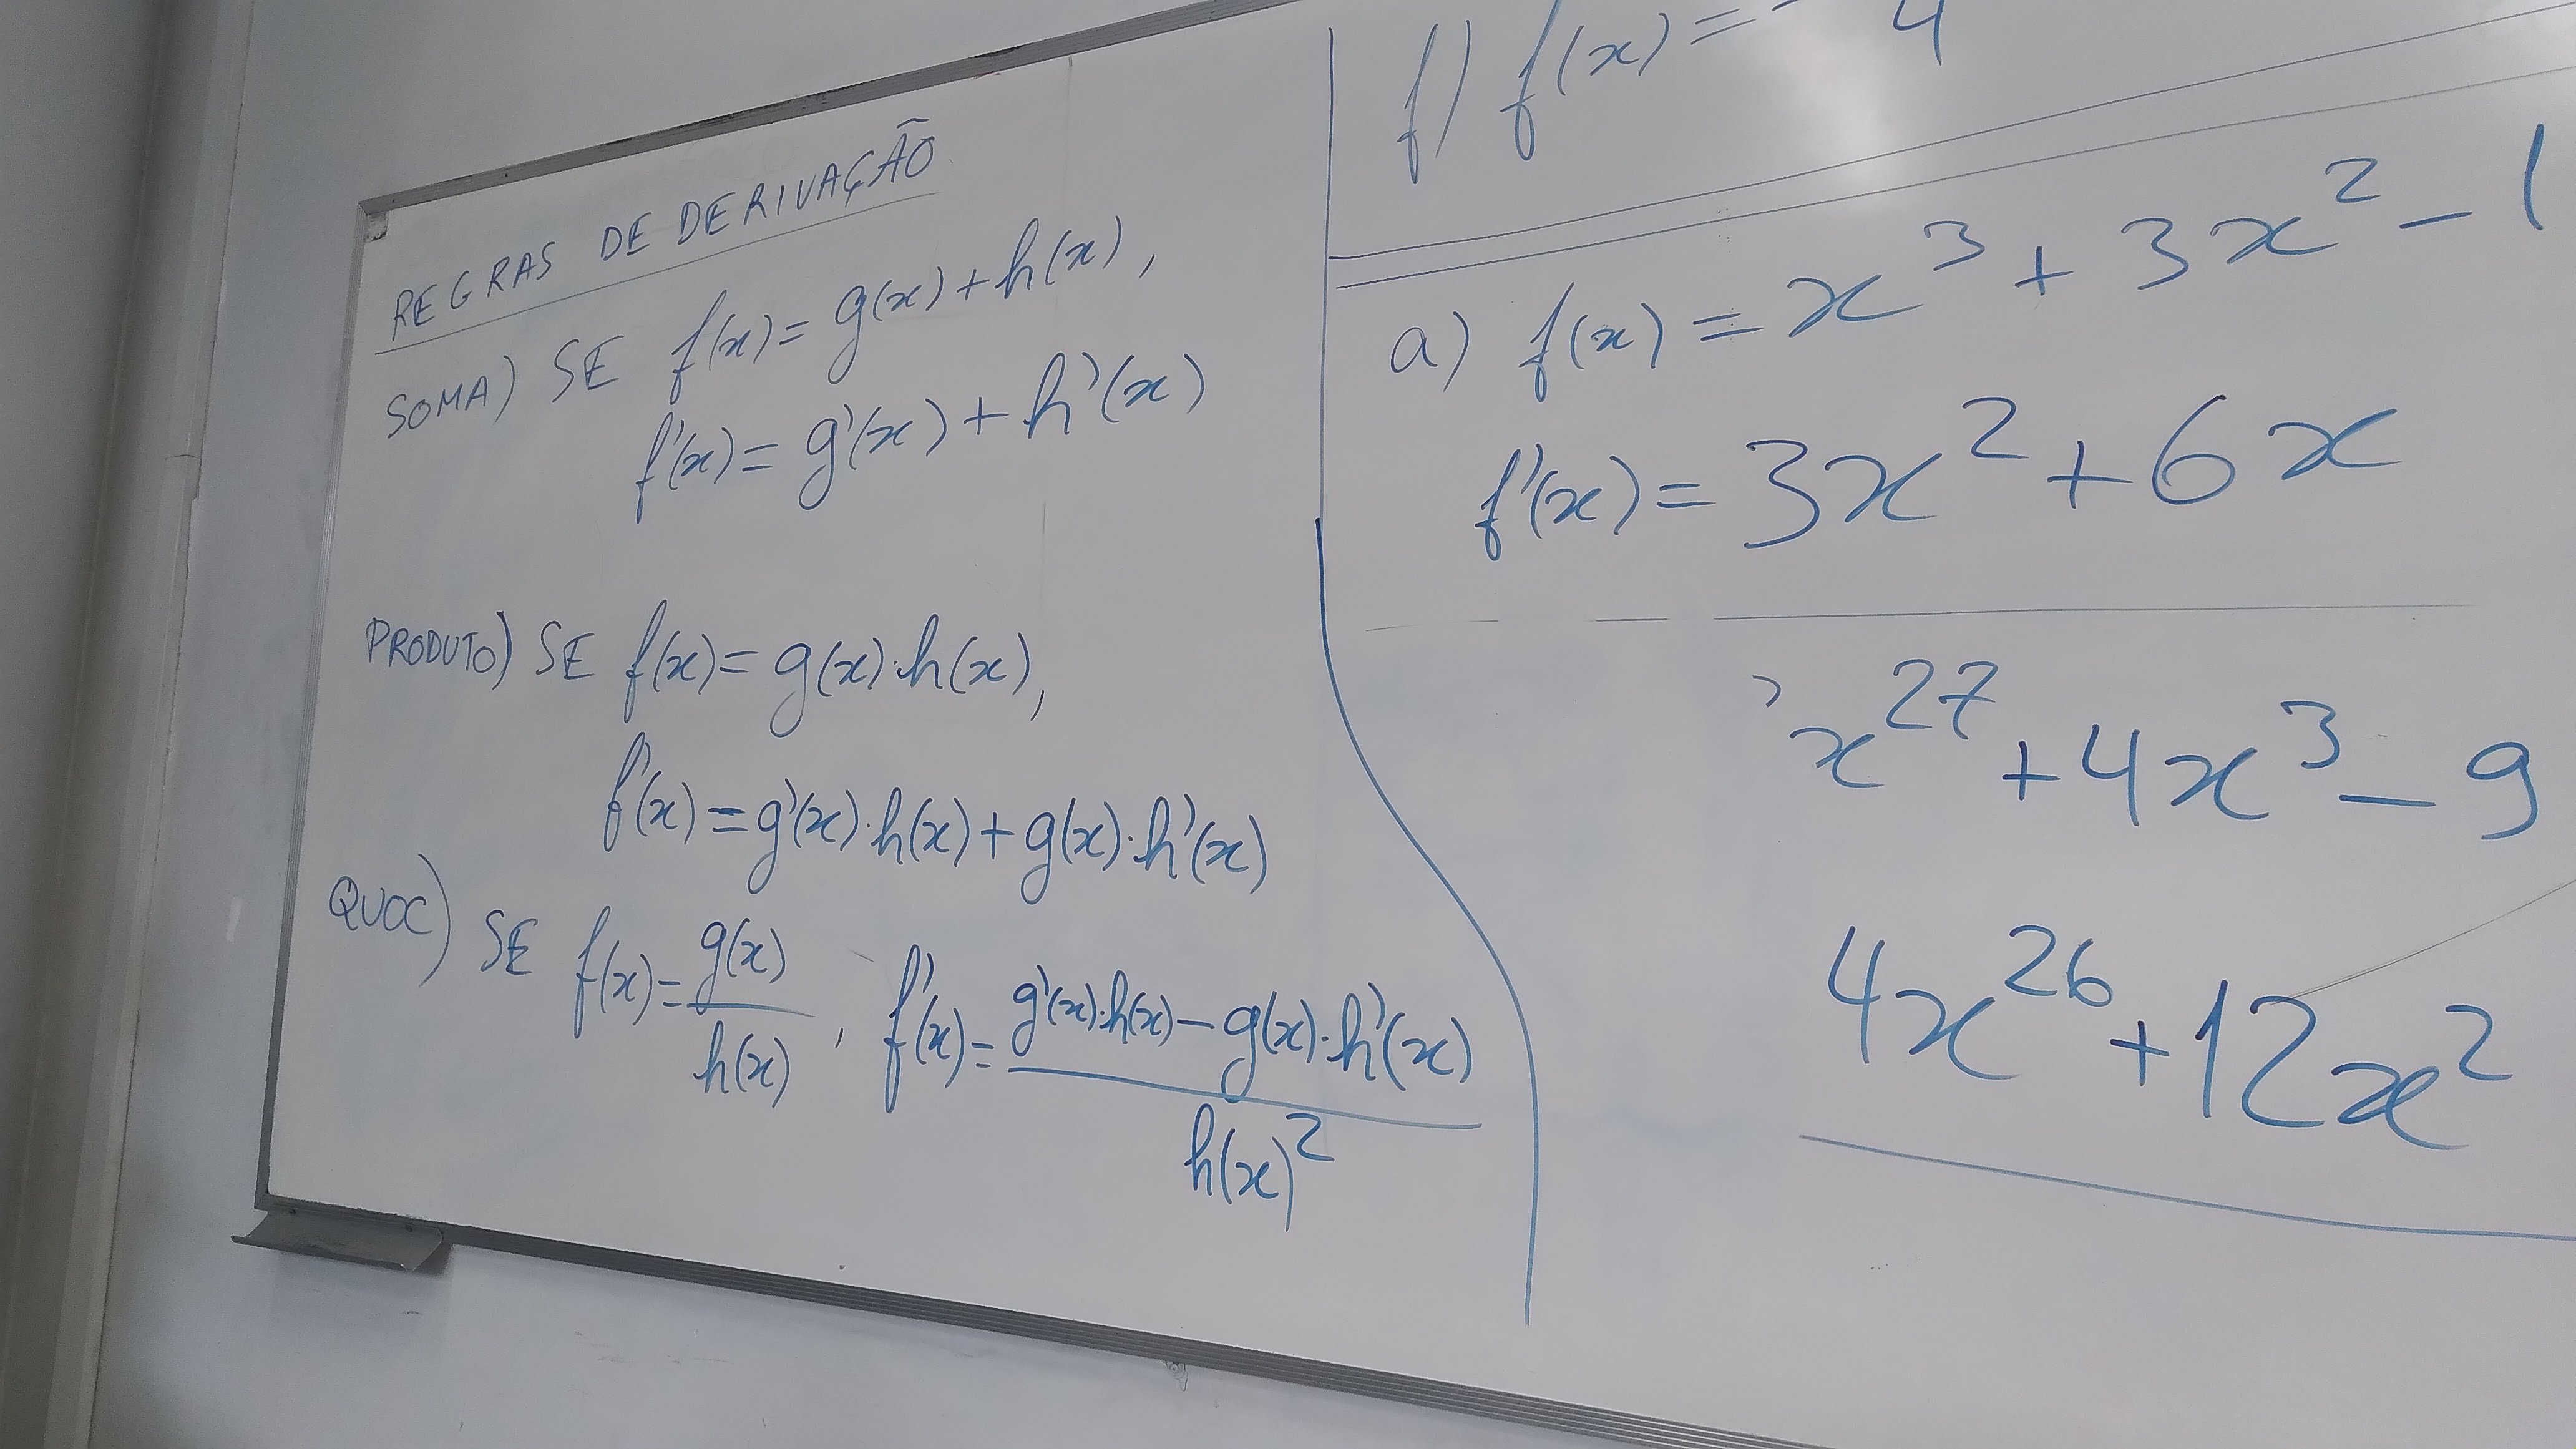 REGRAS DE DERIVAÇÃO
SOMA) SE f(x) = g(x) + h(x),
f'(x) = g'(x) + h'(x)
PRODUTO) SE f(x) = g(x)·h(x),
f'(x) = g'(x)·h(x) + g(x)·h'(x)
QUOC) SE f(x) = g(x)/h(x), f'(x) = g'(x)·h(x) − g(x)·h'(x)/h(x)²
f) f(x) = 4
a) f(x) = x³ + 3x² − 1
f'(x) = 3x² + 6x
x²⁷ + 4x³ − 9
4x²⁶ + 12x²